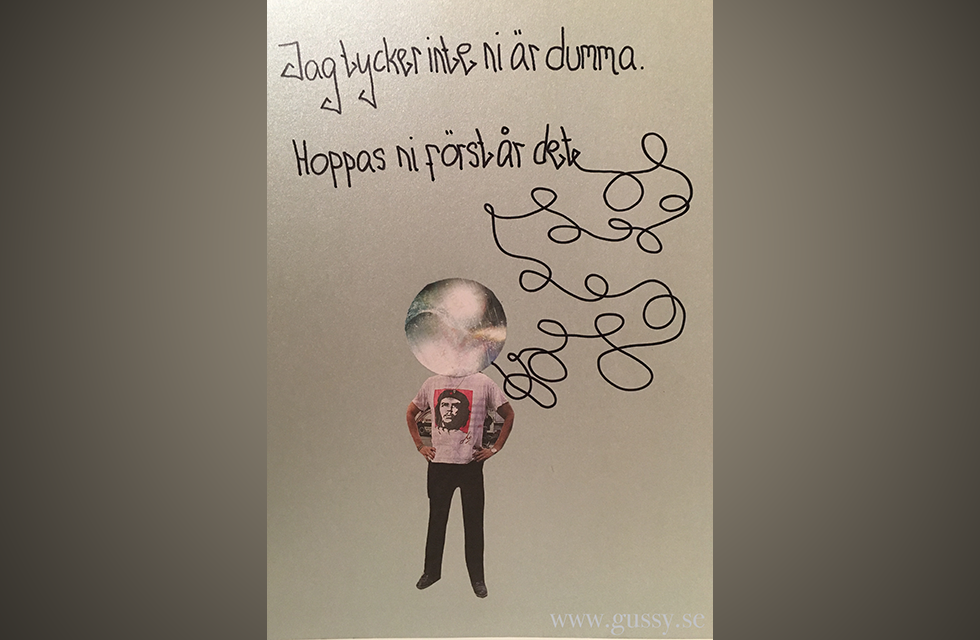 Jag tycker inte ni är dumma.
Hoppas ni förstår dete
www.gussy.se